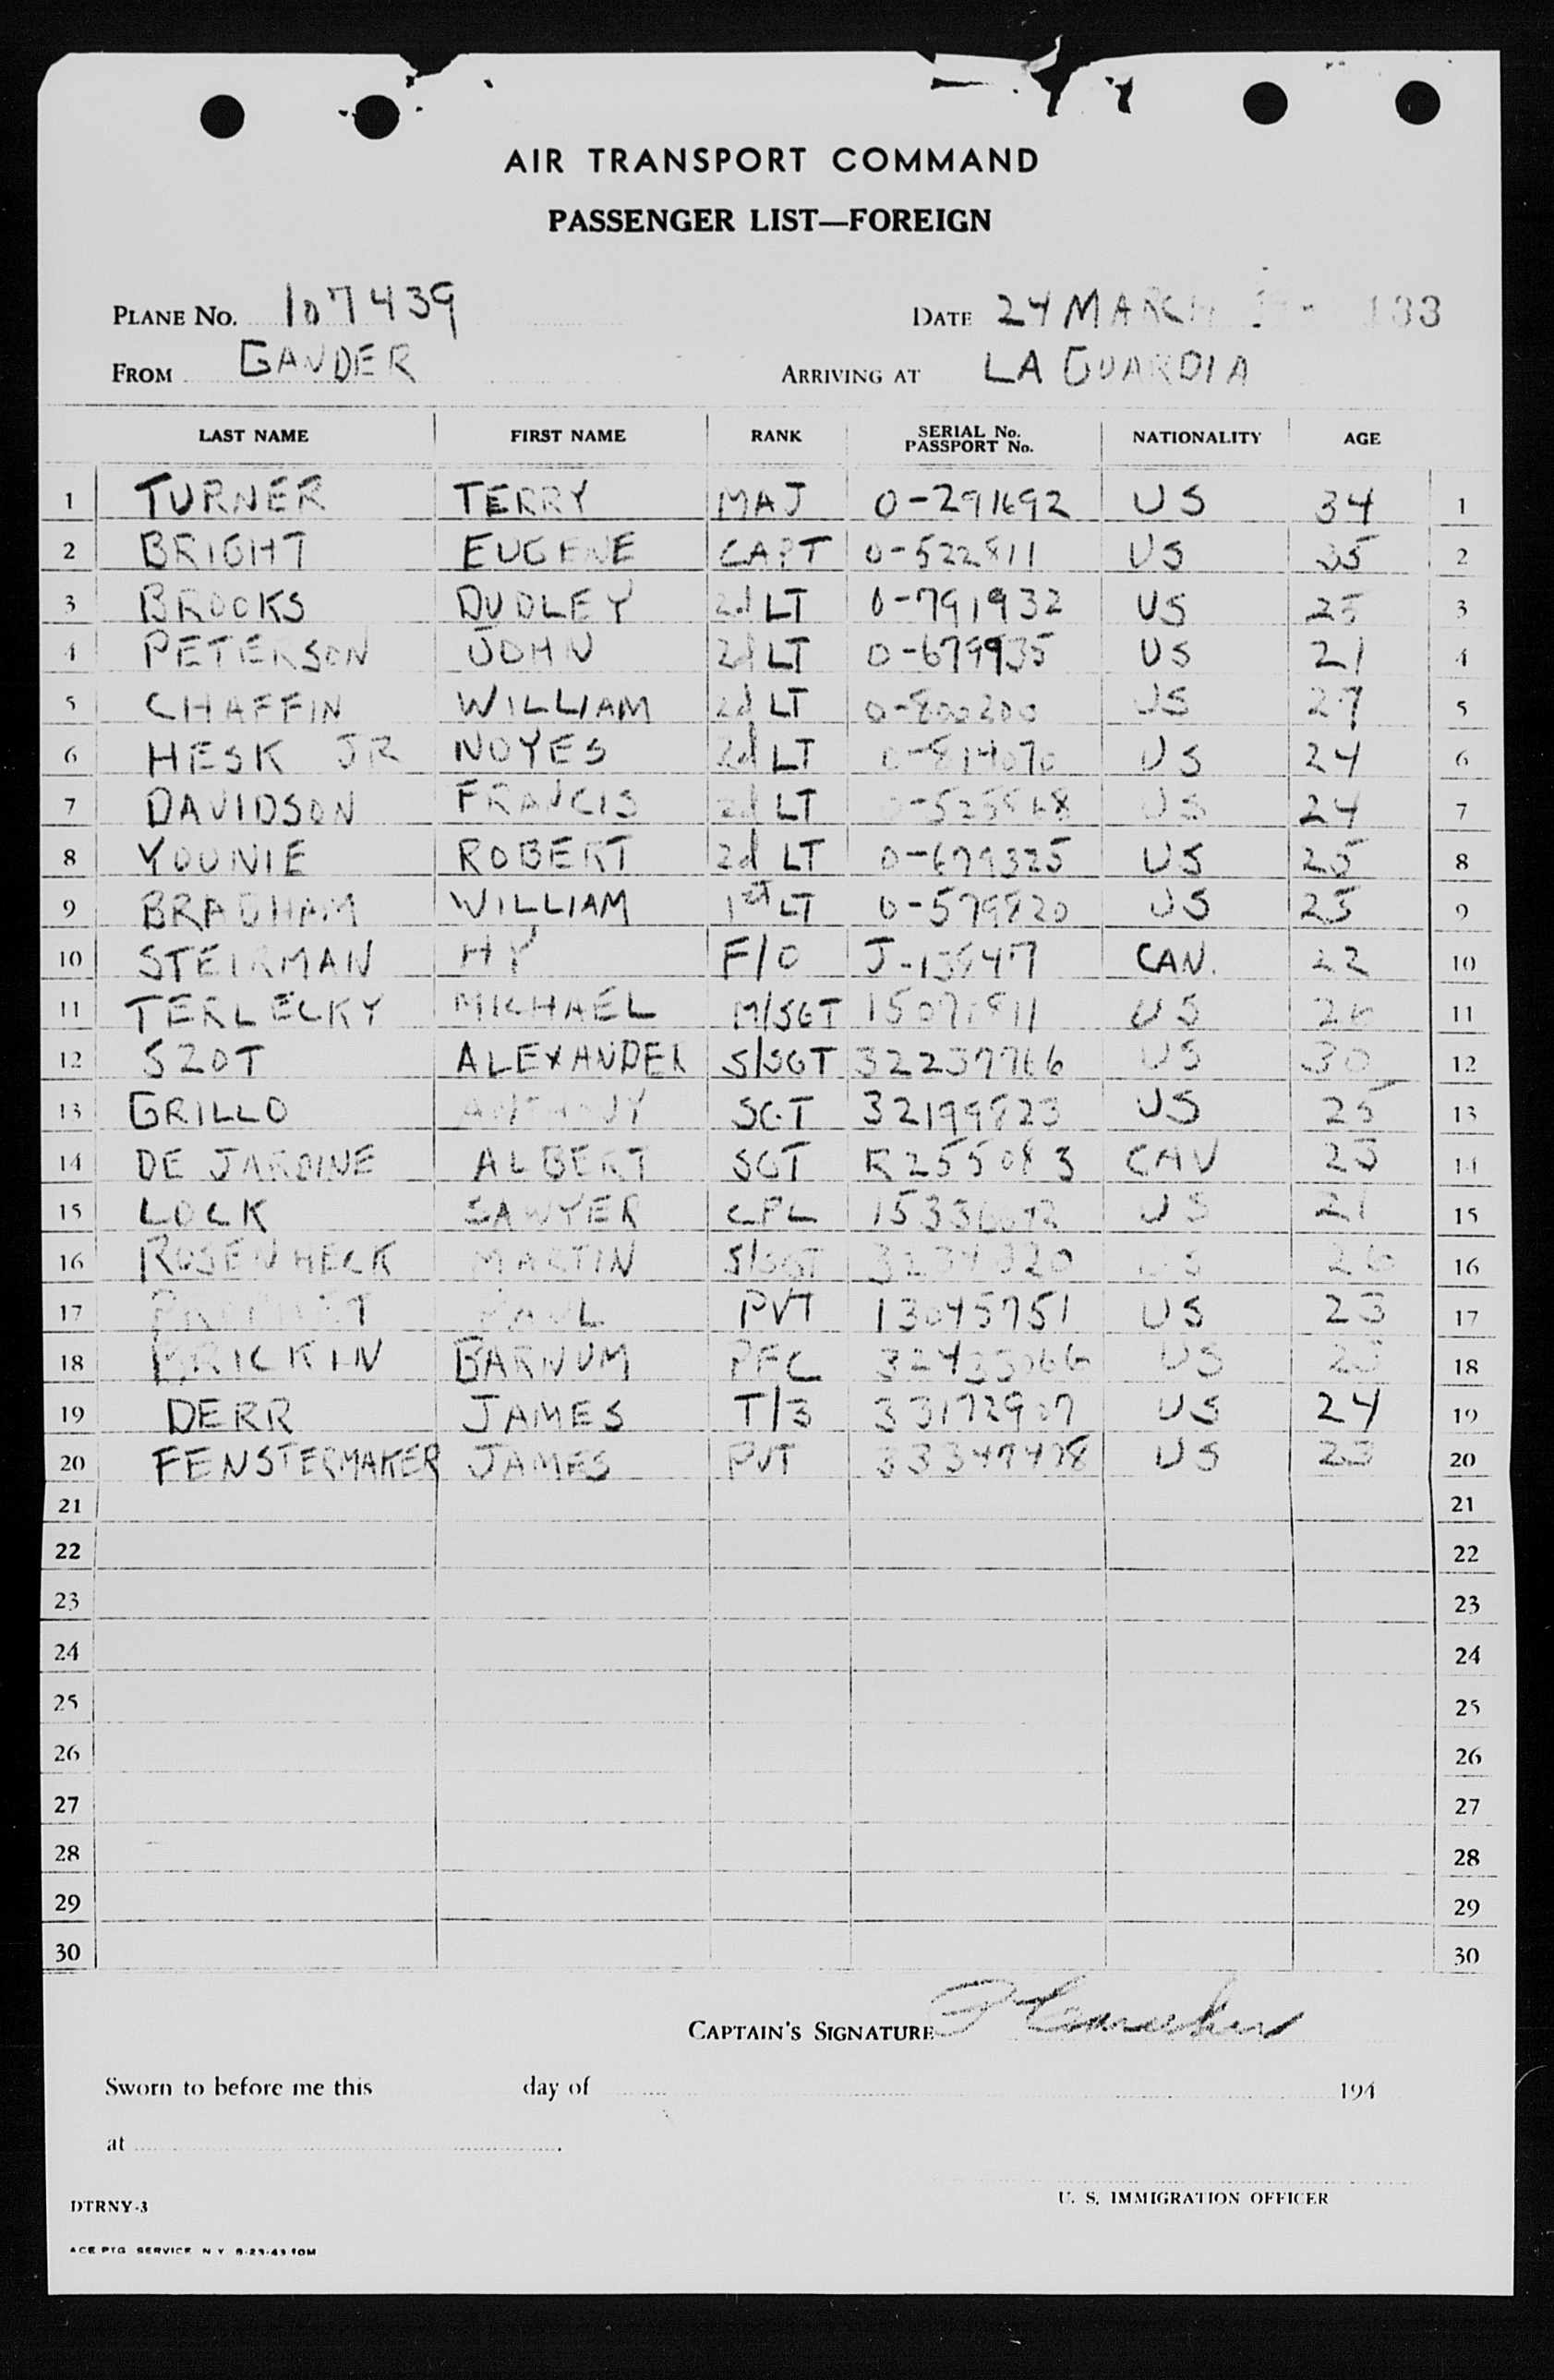 AIR TRANSPORT COMMAND
PASSENGER LIST—FOREIGN
PLANE NO. 107439 DATE 24 MARCH
FROM GANDER ARRIVING AT LA GUARDIA
LAST NAME FIRST NAME RANK SERIAL No. PASSPORT No. NATIONALITY AGE
1 TURNER TERRY MAJ 0-291692 US 34 1
2 BRIGHT EUGENE CAPT 0-522811 US 35 2
3 BROOKS DUDLEY 2d LT 0-791932 US 25 3
4 PETERSON JOHN 2d LT 0-679935 US 21 4
5 CHAFFIN WILLIAM 2d LT 0-800200 US 27 5
6 HESK JR NOYES 2d LT 0-814070 US 24 6
7 DAVIDSON FRANCIS 2d LT US 24 7
8 YOUNIE ROBERT 2d LT 0-679325 US 25 8
9 BRABHAM WILLIAM 1st LT 0-579820 US 25 9
10 STEIRMAN HY F/O CAN. 22 10
11 TERLECKY MICHAEL M/SGT US 26 11
12 SZOT ALEXANDER S/SGT 32237766 US 30 12
13 GRILLO ANTHONY SGT 32199823 US 25 13
14 DE JARDINE ALBERT SGT R255083 CAN 23 14
15 LOCK SAWYER CPL US 21 15
16 ROSENHECK MARTIN S/SGT US 26 16
17 PAUL PVT 13045751 US 23 17
18 BRICKIN BARNUM PFC US 23 18
19 DERR JAMES T/3 33172907 US 24 19
20 FENSTERMAKER JAMES PVT 33347478 US 23 20
21 21
22 22
23 23
24 24
25 25
26 26
27 27
28 28
29 29
30 30
CAPTAIN'S SIGNATURE
Sworn to before me this day of 194
at
U. S. IMMIGRATION OFFICER
DTRNY-3
ACE PTG SERVICE N Y 8-23-43-10M